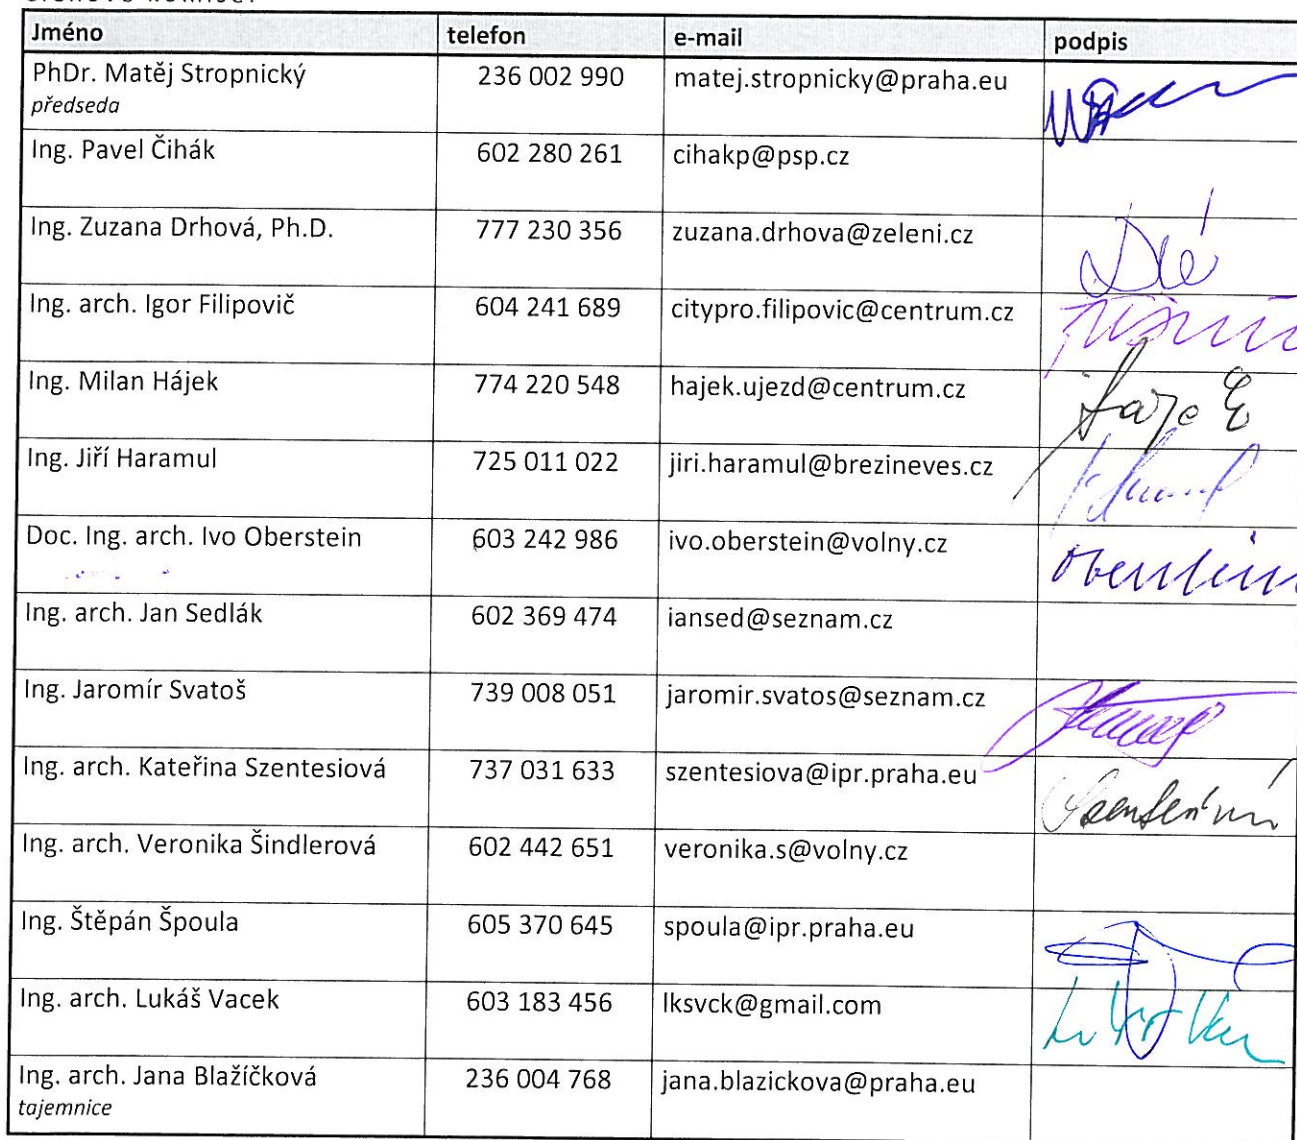 Jméno telefon e-mail podpis
PhDr. Matěj Stropnický 236 002 990 matej.stropnicky@praha.eu
předseda
Ing. Pavel Čihák 602 280 261 cihakp@psp.cz
Ing. Zuzana Drhová, Ph.D. 777 230 356 zuzana.drhova@zeleni.cz
Ing. arch. Igor Filipovič 604 241 689 citypro.filipovic@centrum.cz
Ing. Milan Hájek 774 220 548 hajek.ujezd@centrum.cz
Ing. Jiří Haramul 725 011 022 jiri.haramul@brezineves.cz
Doc. Ing. arch. Ivo Oberstein 603 242 986 ivo.oberstein@volny.cz
Ing. arch. Jan Sedlák 602 369 474 iansed@seznam.cz
Ing. Jaromír Svatoš 739 008 051 jaromir.svatos@seznam.cz
Ing. arch. Kateřina Szentesiová 737 031 633 szentesiova@ipr.praha.eu
Ing. arch. Veronika Šindlerová 602 442 651 veronika.s@volny.cz
Ing. Štěpán Špoula 605 370 645 spoula@ipr.praha.eu
Ing. arch. Lukáš Vacek 603 183 456 lksvck@gmail.com
Ing. arch. Jana Blažíčková 236 004 768 jana.blazickova@praha.eu
tajemnice